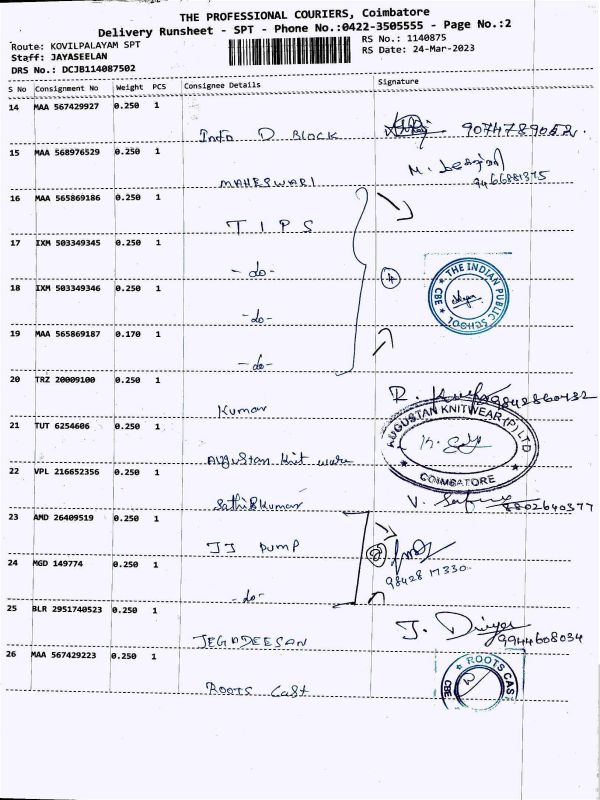 THE PROFESSIONAL COURIERS, Coimbatore
Delivery Runsheet - SPT - Phone No.:0422-3505555 - Page No.:2
Route: KOVILPALAYAM SPT
RS No.: 1140875
Staff: JAYASEELAN
RS Date: 24-Mar-2023
DRS No.: DCJB114087502
S No Consignment No Weight PCS Consignee Details Signature
14 MAA 567429927 0.250 1
Info D Block 9074789052.
15 MAA 568976529 0.250 1
MAHESWARI 9466881375
16 MAA 565869186 0.250 1
T I P S
17 IXM 503349345 0.250 1
-do-
THE INDIAN PUBLIC SCHOOL CBE
18 IXM 503349346 0.250 1
-do-
19 MAA 565869187 0.170 1
-do-
20 TRZ 20009100 0.250 1
Kumar
21 TUT 6254606 0.250 1
AUGUSTAN KNITWEAR (P) LTD
COIMBATORE
Augustan knit ware
22 VPL 216652356 0.250 1
Sathishkumar 8802640377
23 AMD 26409519 0.250 1
JJ PUMP
24 MGD 149774 0.250 1
98428 17330
-do-
25 BLR 2951740523 0.250 1
JEGADEESAN 9944608034
26 MAA 567429223 0.250 1
ROOTS CAS
CBE
ROOTS Cast